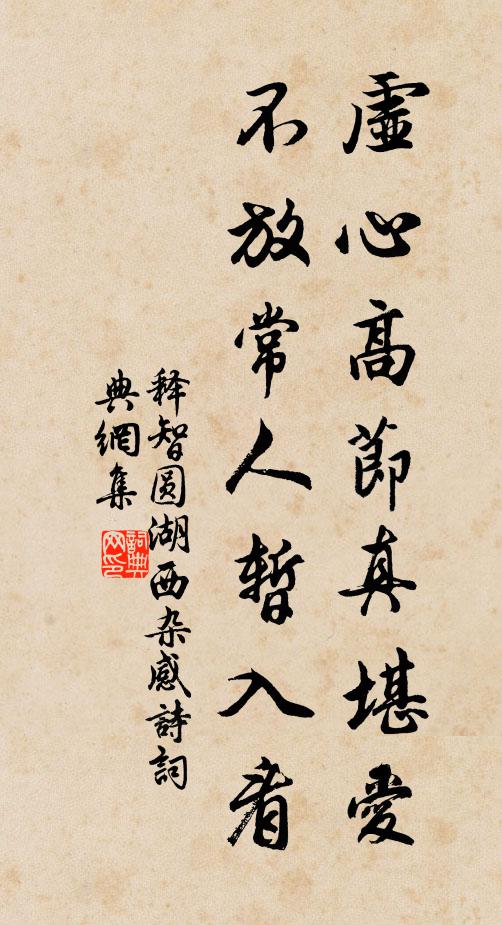 虛心高節真堪愛
不放常人暫入看
释智圆湖西杂感詩詞
典網集
詞典
网印